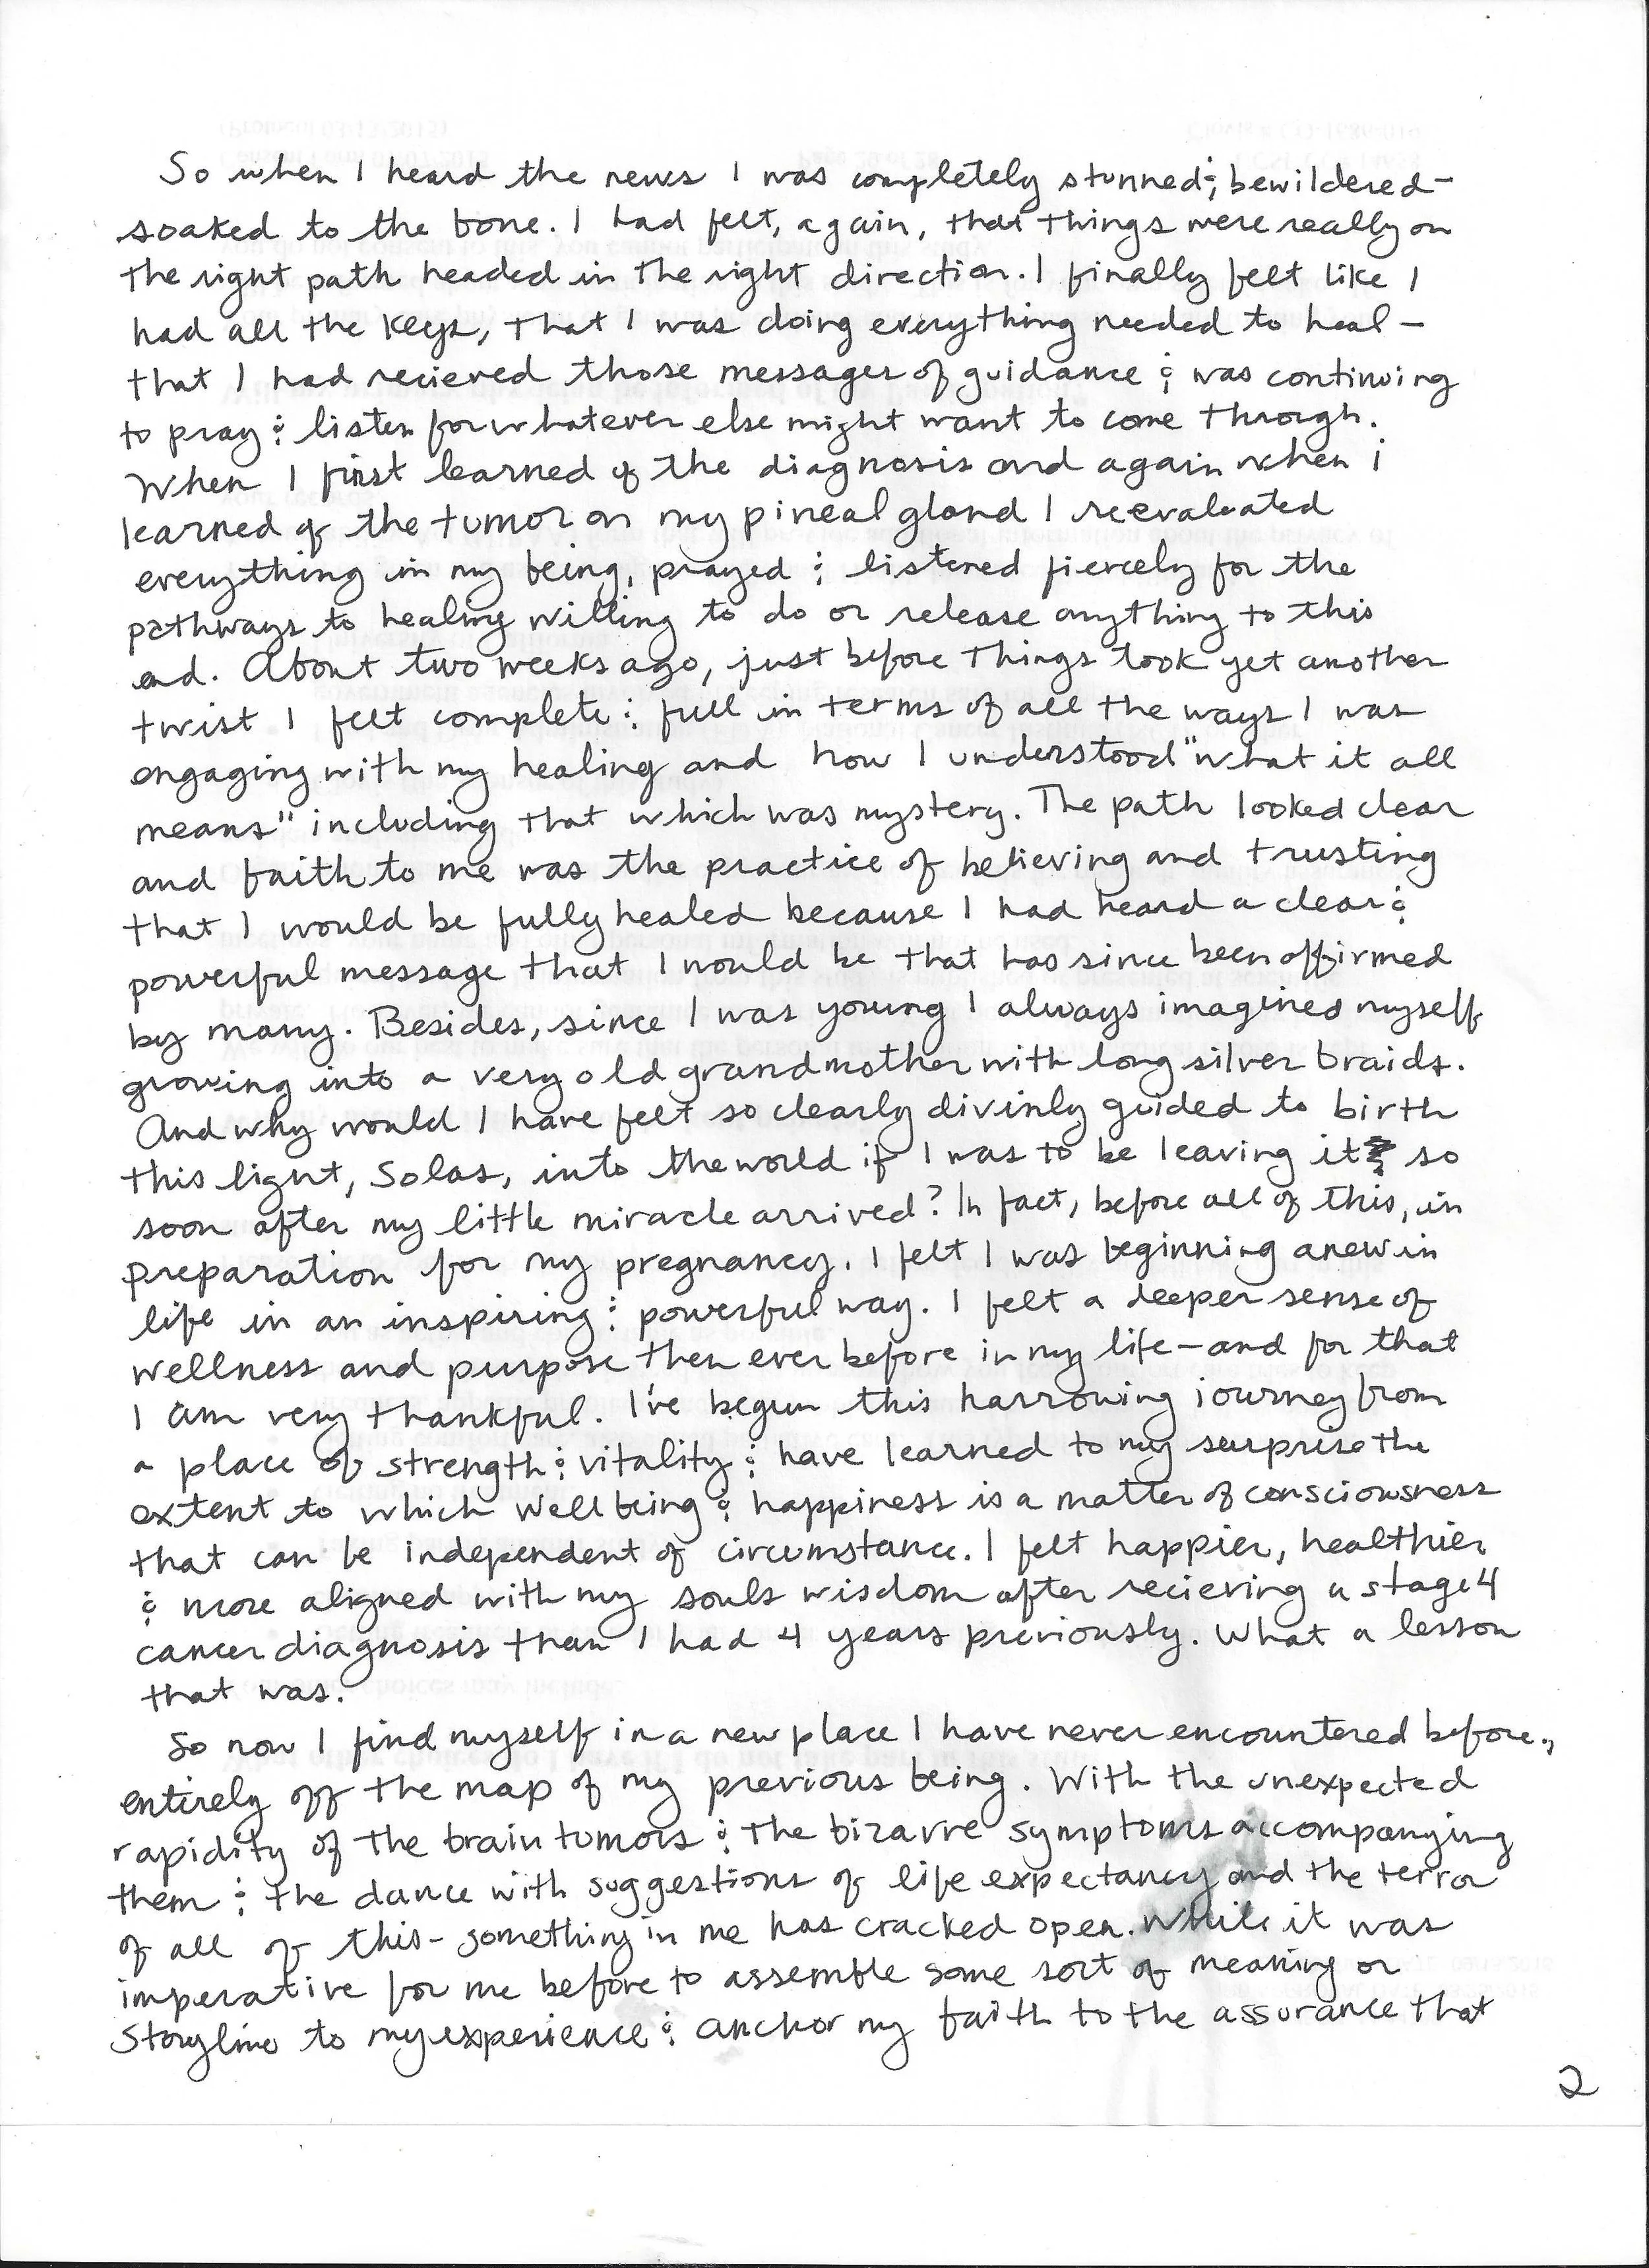 So when I heard the news I was completely stunned & bewildered -
soaked to the bone. I had felt, again, that things were really on
the right path headed in the right direction. I finally felt like I
had all the keys, that I was doing everything needed to heal -
that I had recieved those messages of guidance & was continuing
to pray & listen for whatever else might want to come through.
When I first learned of the diagnosis and again when i
learned of the tumor on my pineal gland I reevaluated
everything in my being, prayed & listened fiercely for the
pathways to healing willing to do or release anything to this
end. About two weeks ago, just before things took yet another
twist I felt complete & full in terms of all the ways I was
engaging with my healing and how I understood "what it all
means" including that which was mystery. The path looked clear
and faith to me was the practice of believing and trusting
that I would be fully healed because I had heard a clear &
powerful message that I would be that has since been affirmed
by many. Besides, since I was young I always imagined myself
growing into a very old grandmother with long silver braids.
And why would I have felt so clearly divinly guided to birth
this light, Solas, into the world if I was to be leaving it so
soon after my little miracle arrived? In fact, before all of this, in
preparation for my pregnancy, I felt I was beginning anew in
life in an inspiring & powerful way. I felt a deeper sense of
wellness and purpose then ever before in my life - and for that
I am very thankful. I've begun this harrowing journey from
a place of strength & vitality & have learned to my surprise the
extent to which wellbeing & happiness is a matter of consciousness
that can be independent of circumstance. I felt happier, healthier
& more aligned with my souls wisdom after recieving a stage 4
cancer diagnosis than I had 4 years previously. What a lesson
that was.
So now I find myself in a new place I have never encountered before.,
entirely off the map of my previous being. With the unexpected
rapidity of the brain tumors & the bizarre symptoms accompanying
them & the dance with suggestions of life expectancy and the terror
of all of this - something in me has cracked open. While it was
imperative for me before to assemble some sort of meaning or
storyline to my experience & anchor my faith to the assurance that
2